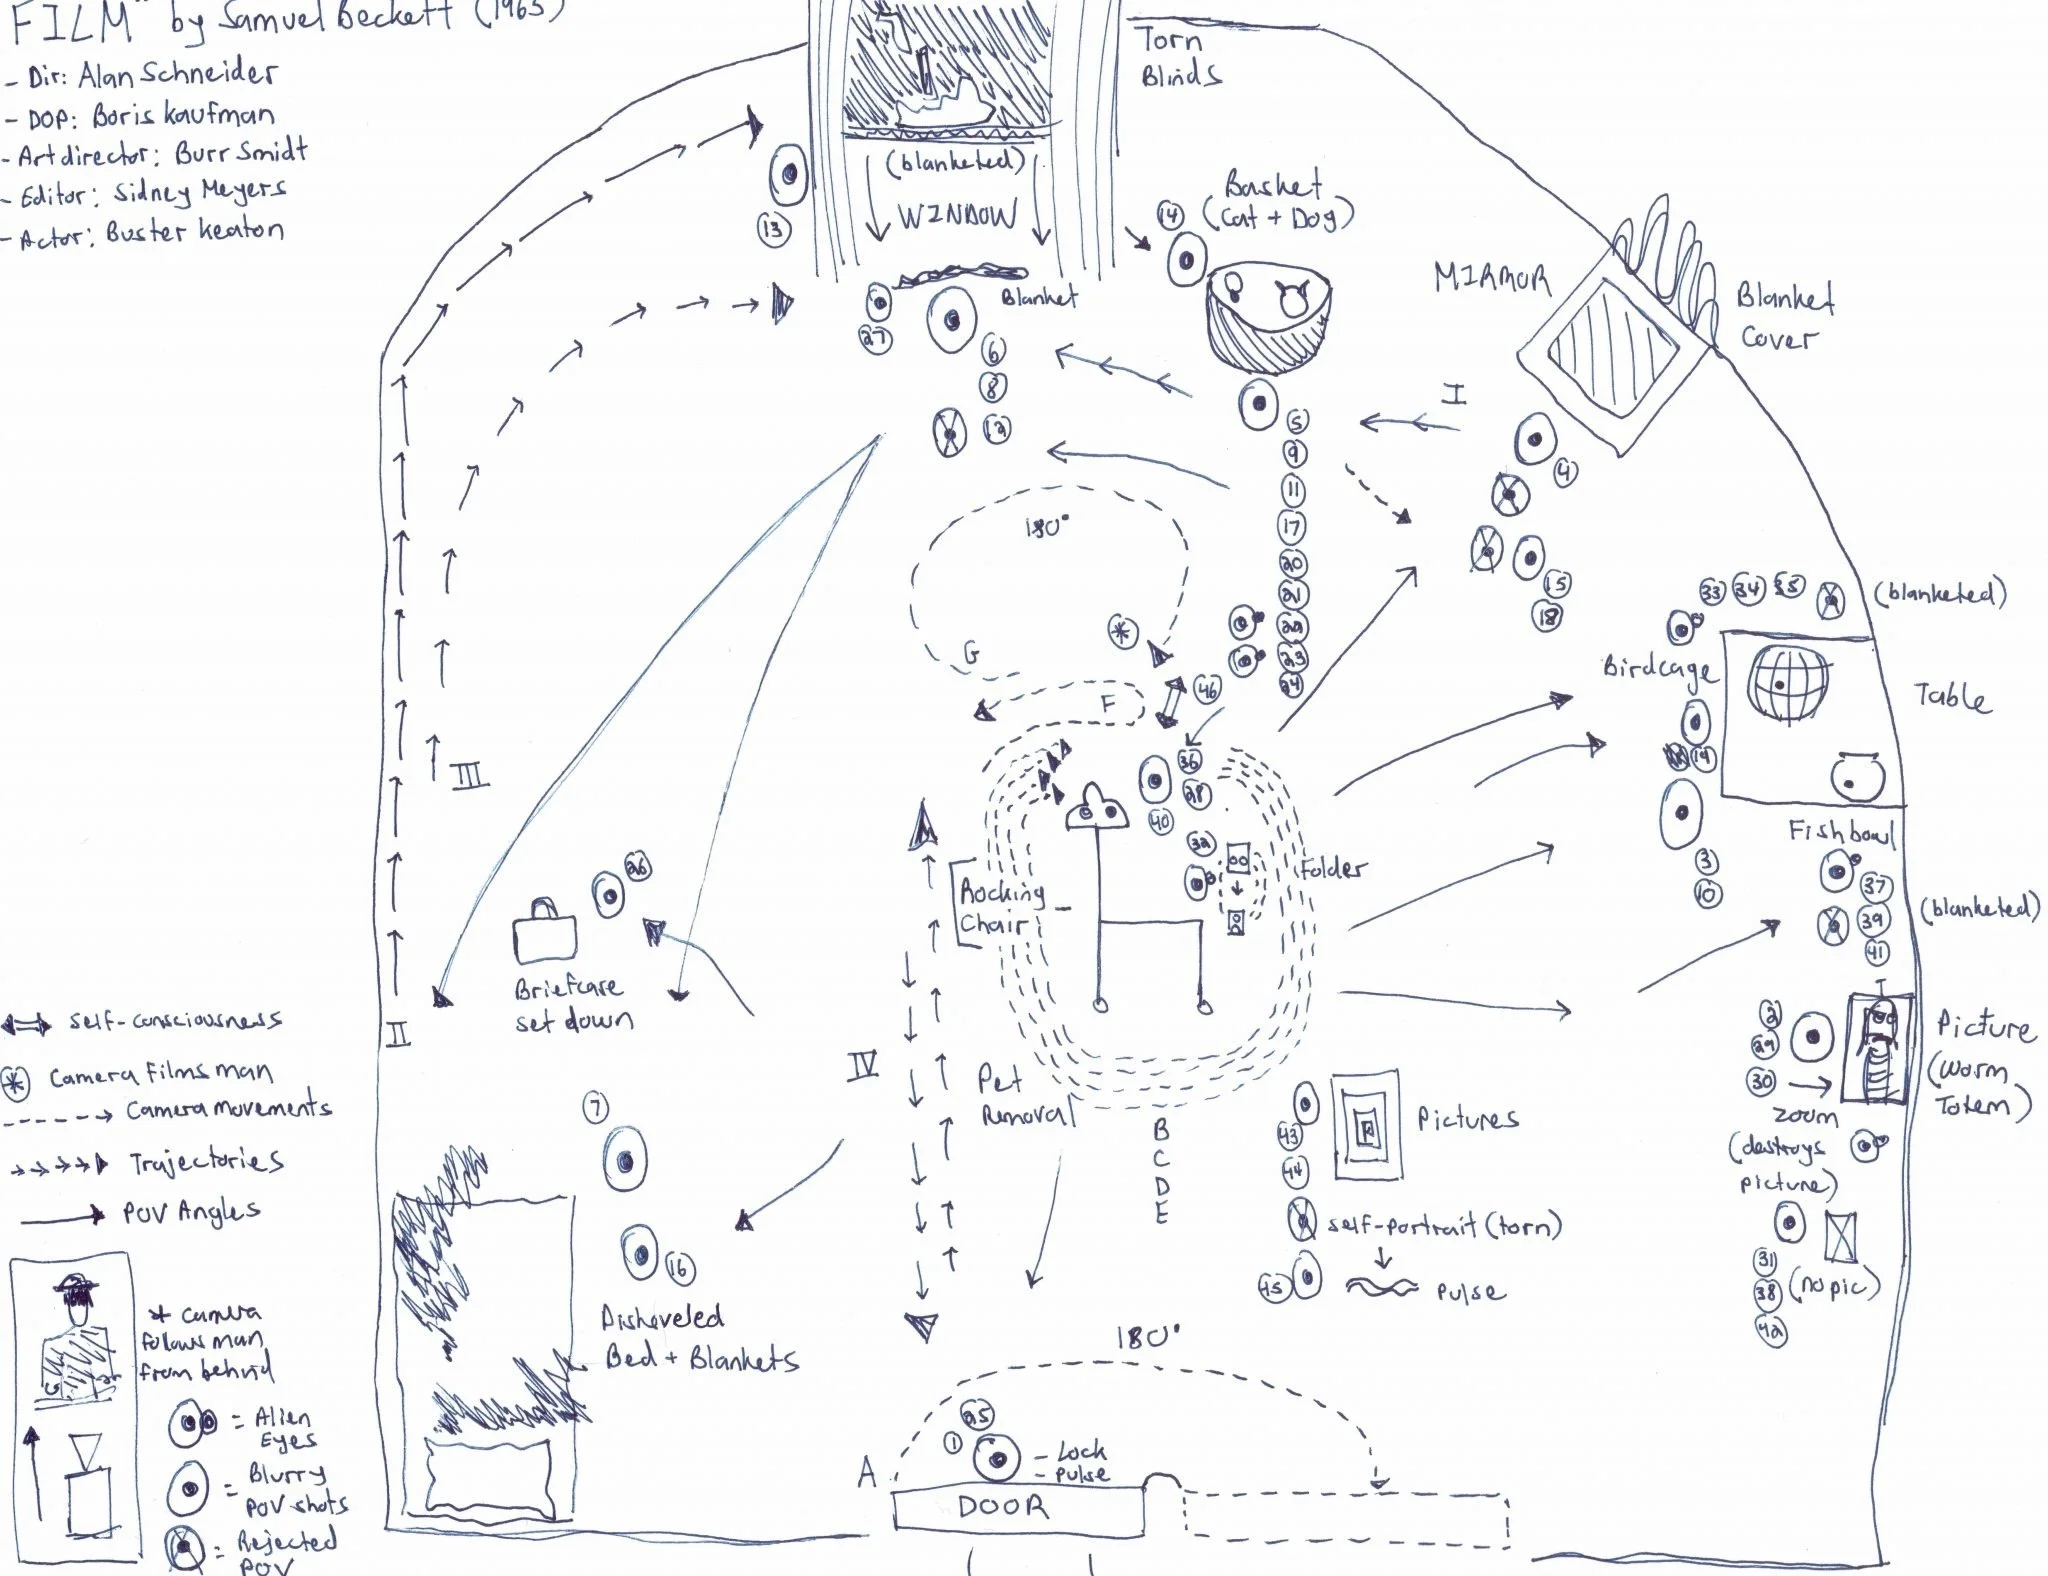 FILM" by Samuel Beckett (1965)
- Dir: Alan Schneider
- DOP: Boris Kaufman
- Art director: Burr Smidt
- Editor: Sidney Meyers
- Actor: Buster Keaton
Torn
Blinds
(blanketed)
WINDOW
Blanket
13
27
6
8
12
14
Basket
(Cat + Dog)
5
9
11
17
20
21
22
23
24
MIRROR
Blanket
Cover
I
4
15
18
180°
G
F
46
33 34 35
(blanketed)
Birdcage
Table
19
Fishbowl
3
10
37
39
41
(blanketed)
36
28
40
32
Folder
Rocking
Chair
III
26
Briefcase
set down
II
IV
Pet
Removal
B
C
D
E
2
29
30
Picture
(Worm
Totem)
zoom
(destroys
picture)
31
38
42
(no pic)
Pictures
43
44
self-portrait (torn)
45
pulse
7
16
Disheveled
Bed + Blankets
180°
A
25
1
- Lock
- pulse
DOOR
self-consciousness
Camera Films man
Camera movements
Trajectories
POV Angles
* camera
follows man
from behind
= Alien
Eyes
= Blurry
POV shots
= Rejected
POV